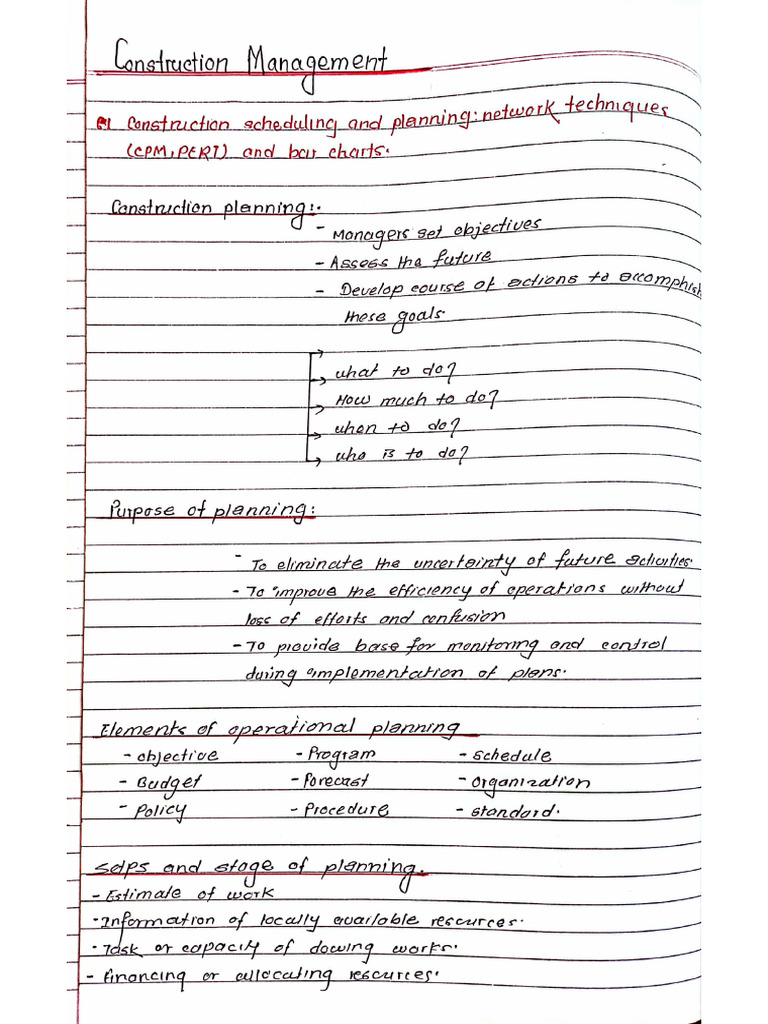 Construction Management
Construction scheduling and planning: network techniques
(CPM, PERT) and bar charts.
Construction planning:-
- Managers set objectives
- Assess the future
- Develop course of actions to accomphish
these goals.
what to do?
How much to do?
when to do?
who is to do?
Purpose of planning:
- To eliminate the uncertainty of future activities.
- To improve the efficiency of operations without
loss of efforts and confusion
- To provide base for monitoring and control
during implementation of plans.
Elements of operational planning
- objective - Program - schedule
- Budget - Forecast - organization
- Policy - Procedure - standard.
and stage of planning.
- Estimate of work
- Information of locally available resources.
- Task or capacity of dowing works.
- Financing or allocating resources.